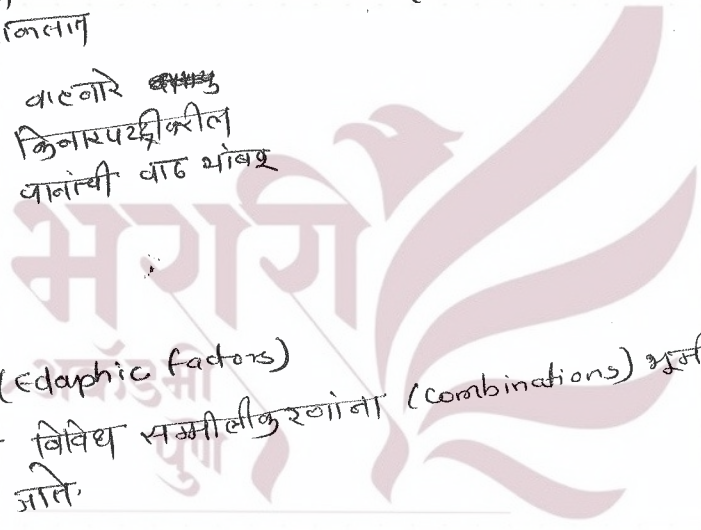 मिळात
वाहनारे
किनारपट्टीवरील
वानांची वाढ थांबश
भरारी
अकॅडमी
पुणे
(Edaphic factors)
विविध सम्मीलीकरणांना (Combinations)
जाते.